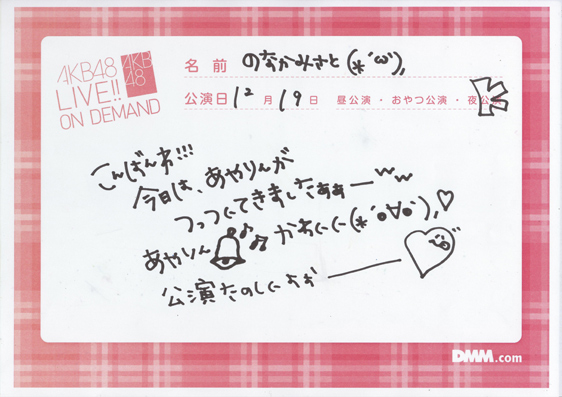 AKB48
LIVE!!
ON DEMAND
AKB
48
名前 のなかみさと(*´ω`),
公演日 12月19日 昼公演・おやつ公演・夜公演
こんばんわ!!!
今日は、あやりんが
つっつにてきましたぁぁー
あやりん かわにに(*´∀`),♡
公演たのしによぉ
DMM.com